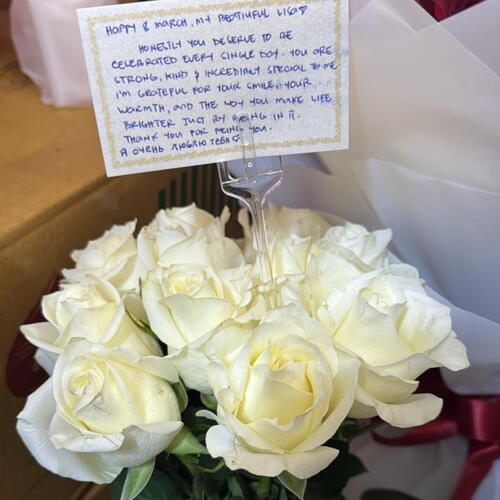 HAPPY 8 MARCH, MY BEAUTIFUL LISA♡
HONESTLY YOU DESERVE TO BE
CELEBRATED EVERY SINGLE DAY. YOU ARE
STRONG, KIND & INCREDIBLY SPECIAL TO ME
I'M GRATEFUL FOR YOUR SMILE, YOUR
WARMTH, AND THE WAY YOU MAKE LIFE
BRIGHTER JUST BY BEING IN IT.
THANK YOU FOR BEING YOU.
Я ОЧЕНЬ ЛЮБЛЮ ТЕБЯ♡